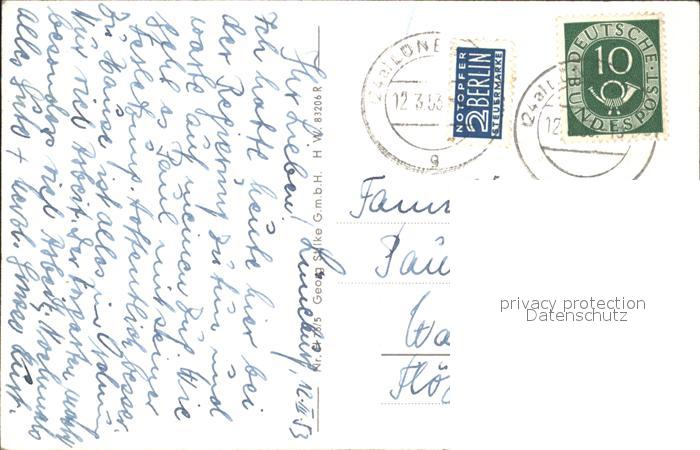 Lüneburg, 12.III.53
Ihr Lieben!
Ich hatte heute hier bei
der Regierung zu tun und
warte auf meinen Zug. Wie
geht es Paul mit seiner
Hoffentlich besser.
Zu Hause ist alles in Ordnung
Nur viel Arbeit. Der
besonders viel Arbeit. Nochmals
alles Gute + herzl. Grüsse Kurt.
Nr. Georg Stilke G.m.b.H. H W 83206 R
(24a) LÜNE
12.3.53
g
NOTOPFER
2 BERLIN
STEUERMARKE
(24a) L
12
DEUTSCHE
10
BUNDESPOST
Fam
Pau
Wa
privacy protection
Datenschutz